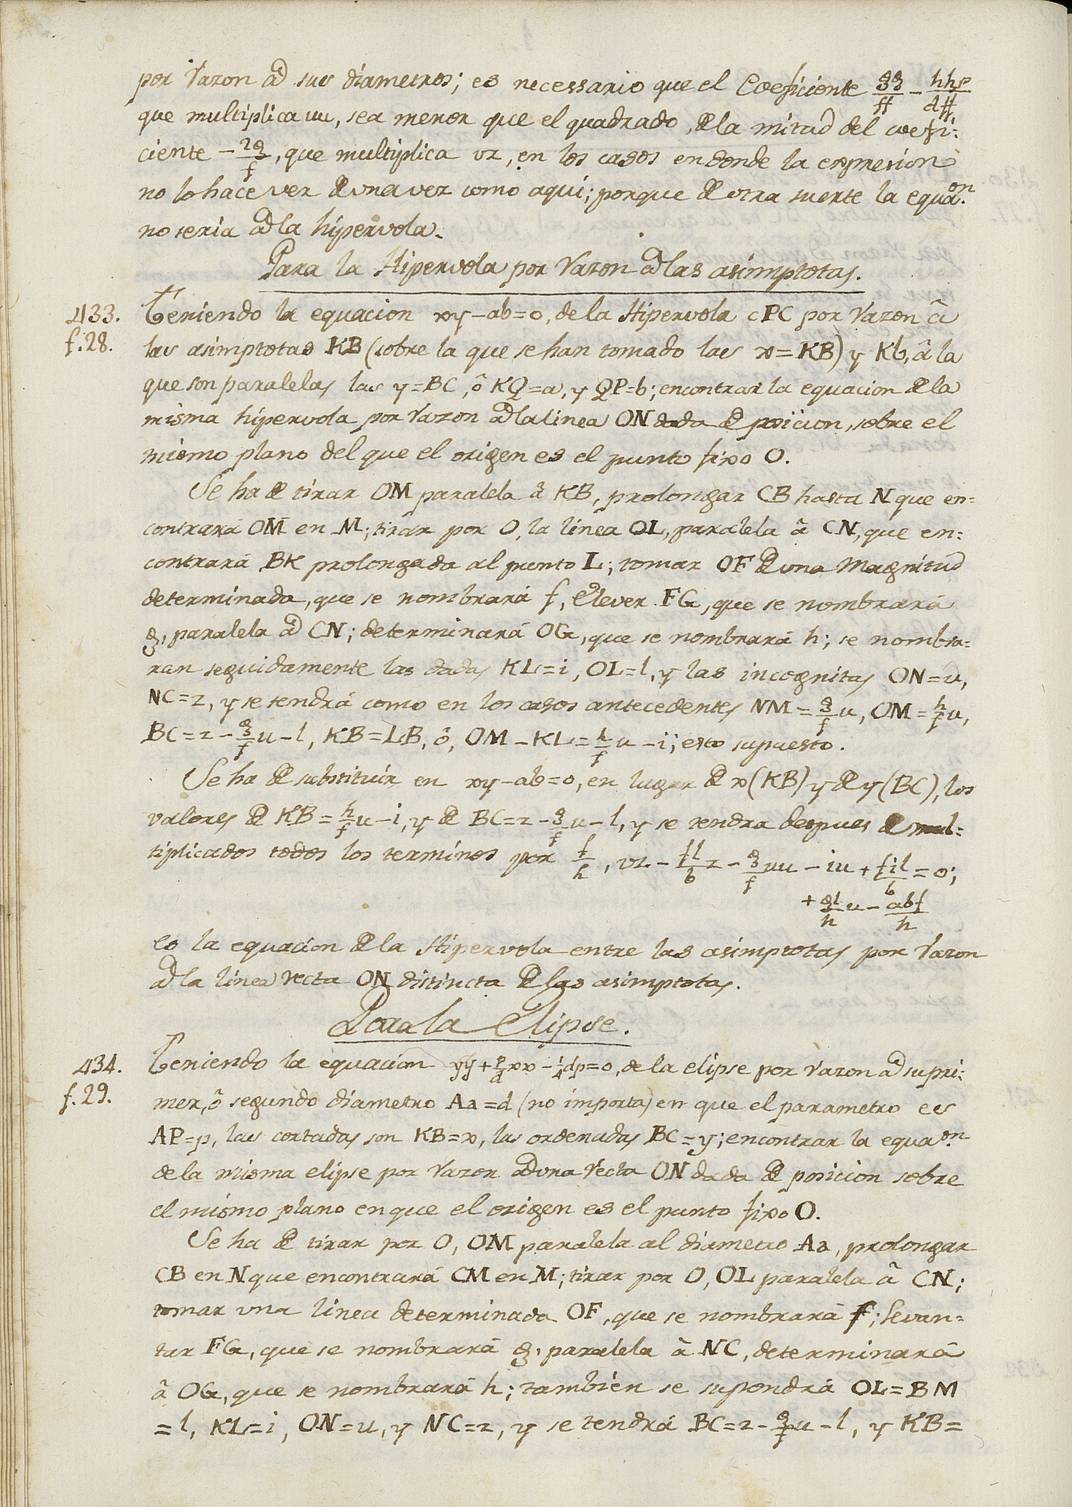 por razon â sus diametros; es necessario que el Coeficiente gg/ff - hhp/dff
que multiplica uu, sea menor que el quadrado de la mitad del coefi-
ciente - 2g/f, que multiplica uz, en los casos en donde la expresion
no lo hace ver de una vez como aqui; porque de otra suerte la equa.on
no seria â la hipervola.
Para la Hipervola por razon â las asimptotas.
433. Teniendo la equacion xy - ab = 0, de la Hipervola cPC por razon â
f.28. las asimptotas KB (sobre la que se han tomado las x = KB) y Kb, â la
que son paralelas las y = BC, ô KQ = a, y QP = b; encontrar la equacion de la
misma hipervola por razon â la linea ON dada de posicion, sobre el
mismo plano del que el origen es el punto fixo O.
Se ha de tirar OM paralela â KB, prolongar CB hasta N que en=
contrará OM en M; tirar por O, la linea OL, paralela â CN, que en=
contrará BK prolongada al punto L; tomar OF de una Magnitud
determinada, que se nombrará f, elever FG, que se nombrará
g, paralela â CN; determinará OG, que se nombrará h; se nombra=
ran seguidamente las dadas KL = i, OL = l, y las incognitas ON = u,
NC = z, y se tendrá como en los casos antecedentes NM = g/f u, OM = h/f u,
BC = z - g/f u - l, KB = LB, ô, OM - KL = h/f u - i; esto supuesto.
Se ha de substituir en xy - ab = 0, en lugar de x (KB) y de y (BC), los
valores de KB = h/f u - i, y de BC = z - g/f u - l, y se tendra despues de mul=
tiplicados todos los terminos por f/h, uz - fi/h z - g/f uu - lu + fil/h = 0;
+ gi/h u - abf/h
es la equacion de la Hipervola entre las asimptotas por razon
â la linea recta ON distincta de las asimptotas.
Para la Elipse.
434. Teniendo la equacion yy + p/d xx - 1/4 dp = 0, de la elipse por razon â su pri-
f.29. mer, ô segundo diametro Aa = d (no importa) en que el parametro es
AP = p, las cortadas son KB = x, las ordenadas BC = y; encontrar la equa.on
de la misma elipse por razon â una recta ON dada de posicion sobre
el mismo plano en que el origen es el punto fixo O.
Se ha de tirar por O, OM paralela al diametro Aa, prolongar
CB en N que encontrará CM en M; tirar por O, OL paralela â CN;
tomar una linea determinada OF, que se nombrará f; levan=
tar FG, que se nombrará g, paralela â NC, determinará
â OG, que se nombrará h; tambien se supondrá OL = BM
= l, KL = i, ON = u, y NC = z, y se tendrá BC = z - g/f u - l, y KB =